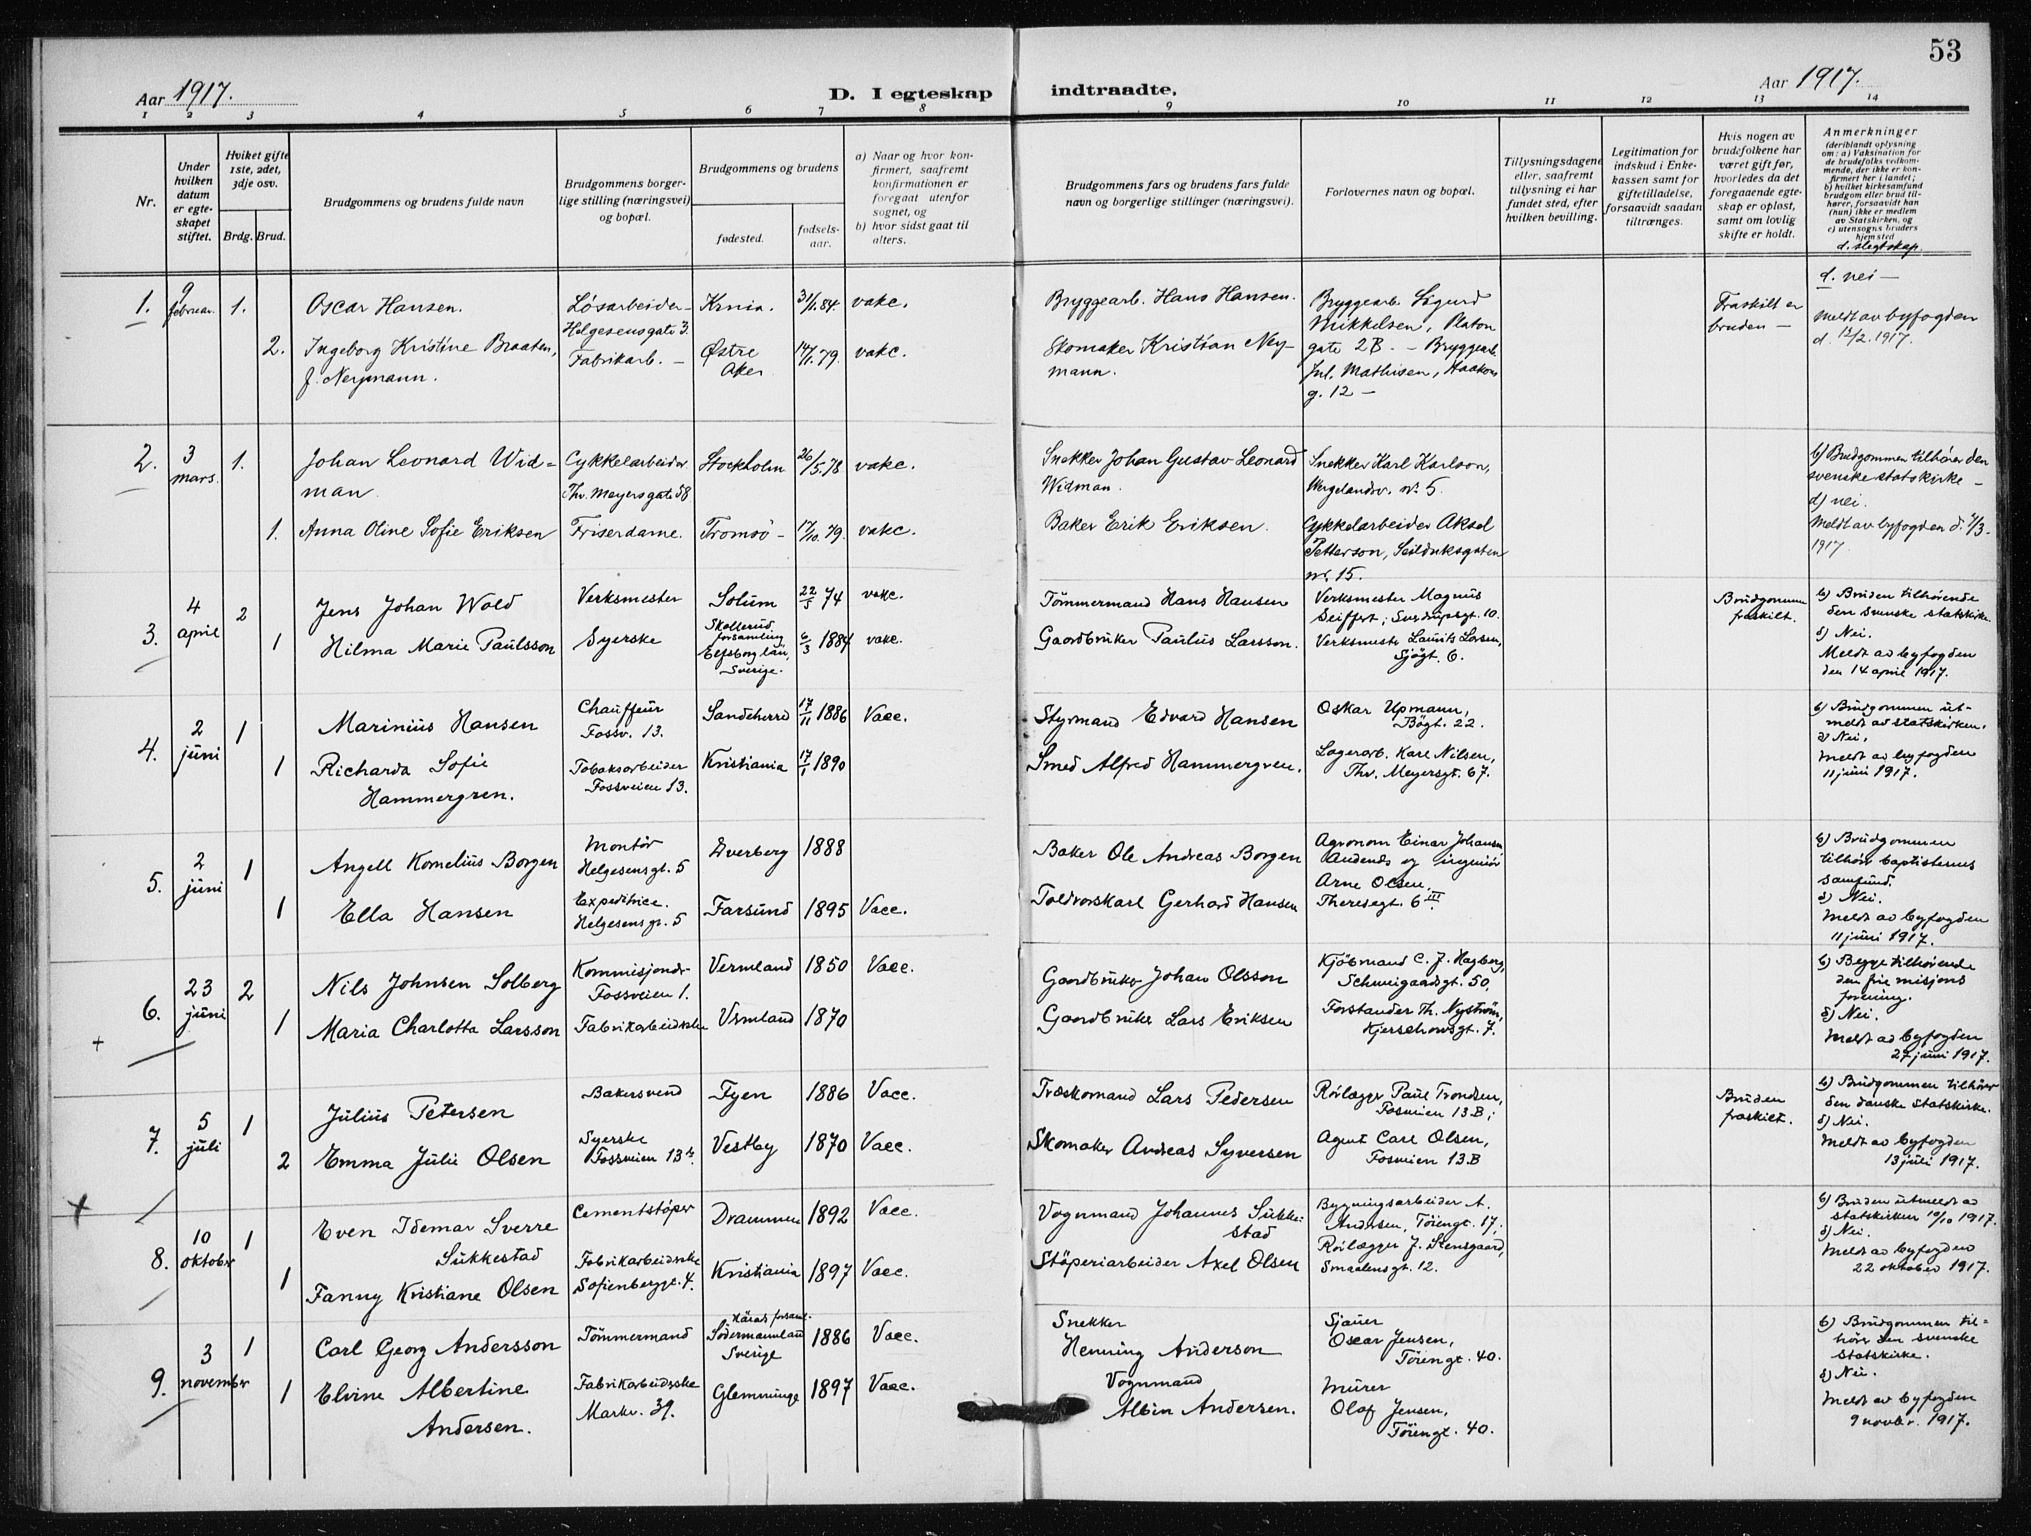 53
Aar 1917.
D. I egteskap indtraadte.
Aar 1917.
1 2 3 4 5 6 7 8 9 10 11 12 13 14
Nr.
Under hvilken datum er egteskapet stiftet.
Hviket gifte 1ste, 2det, 3dje osv.
Brdg. Brud.
Brudgommens og brudens fulde navn
Brudgommens borgerlige stilling (næringsvei) og bopæl.
Brudgommens og brudens
fødested.
fødselsaar.
a) Naar og hvor konfirmert, saafremt konfirmationen er foregaat utenfor sognet, og
b) hvor sidst gaat til alters.
Brudgommens fars og brudens fars fulde navn og borgerlige stillinger (næringsvei).
Forlovernes navn og bopæl.
Tillysningsdagene eller, saafremt tillysning ei har fundet sted, efter hvilken bevilling.
Legitimation for indskud i Enkekassen samt for giftetilladelse, forsaavidt saadan tiltrænges.
Hvis nogen av brudefolkene har været gift før, hvorledes da det foregaaende egteskap er opløst, samt om lovlig skifte er holdt.
Anmerkninger
(deriblandt oplysning om: a) Vaksination for de brudefolks vedkommende, der ikke er konfirmert her i landet; b) hvilket kirkesamfund brudgom eller brud tilhører, forsaavidt han (hun) ikke er medlem av Statskirken, og c) utensogns bruders hjemsted
d. slegtskap.
1. 9 februar. 1. Oscar Hansen. Løsarbeider Helgesensgate 3. Krnia. 31/1.84. vakc. Bryggearb. Hans Hansen. Bryggearb. Sigurd Mikkelsen, Platongate 2B. – Bryggearb. Jul. Mathisen, Haakonsg. 12 – Fraskilt er bruden – d. nei –
2. Ingeborg Kristine Braaten, f. Neymann. Fabrikarb. – Østre Aker 14/1.79. vakc. Skomaker Kristian Neymann. Meldt av byfogden d. 12/2.1917.
2. 3 mars. 1. Johan Leonard Widman. Cykkelarbeider Thv. Meyersgate 58 Stockholm 26/5.78 vakc. Snekker Johan Gustav Leonard Widman. Snekker Karl Karlson, Wergelandsv. nr. 5. b) Brudgommen tilhører den svenske statskirke – d) nei.
1. Anna Oline Sofie Eriksen Friserdame. Tromsø – 17/10.79. vakc. Baker Erik Eriksen. Cykkelarbeider Aksel Petterson, Seilduksgaten nr. 15. Meldt av byfogden d. 7/3.1917.
3. 4 april 2 Jens Johan Wold Verksmester Solum 22/5 74 vakc. Tömmermand Hans Hansen Verksmester Magnus Seiffert, Sundrupsgt. 10. Brudgommen fraskilt. b) Bruden tilhørende den svenske statskirke. d) Nei.
1 Hilma Marie Paulsson Syerske Skallerud forsamling Elfsborg län, Sverige. 6/3 1884 vakc. Gaardbruker Paulus Larsson. Verksmester Laurits Larsen, Sjøgt. 6. Meldt av byfogden den 14 april 1917.
4. 2 juni 1 Marinius Hansen Chauffeur Fossv. 13. Sandeherred 17/11 1886 Vacc. Styrmand Edvard Hansen Oskar Upmann, Bögt. 22. b) Brudgommen utmeldt av statskirken. d) Nei.
1 Richarda Sofie Hammergren. Tobaksarbeider Fossveien 13. Kristiania 17/1 1890 Smed Alfred Hammergren. Lagerarb. Karl Nilsen, Thv. Meyersgt. 67. Meldt av byfogden 11 juni 1917.
5. 2 juni 1 Angell Kornelius Borgen Montör Helgesensgt. 5 Dverberg 1888 Baker Ole Andreas Borgen Agronom Einar Johansen Andenes og ingeniör Arne Olsen, Theresegt. 6 III. b) Brudgommen tilhörer baptisternes samfund. d) Nei.
1 Ella Hansen Expeditrice. Helgesensgt. 5 Farsund 1895 Vacc. Toldvorskarl Gerhard Hansen Meldt av byfogden 11 juni 1917.
6. 23 juni 2 Nils Johnsen Solberg Kommisjonär Fossveien 1. Vermland 1850 Vacc. Gaardbruker Johan Olsson Kjöbmand C. J. Hagberg, Schweigaardsgt. 50. b) Begge tilhørende den frie misjons forening. d) Nei.
+ 1 Maria Charlotta Larsson Fabrikarbeiderske Vermland 1870 Gaardbruker Lars Eriksen Forstander Th. Nyström, Kjerschowsgt. 7. Meldt av byfogden 27 juni 1917.
7. 5 juli 1 Julius Petersen Bakersvend Fyen 1886 Vacc. Træskomand Lars Pedersen Rörlægger Paul Trondsen, Fosveien 13B; Bruden fraskilt. b) Brudgommen tilhörer den danske statskirke. d) Nei.
2 Emma Julie Olsen Syerske Fossveien 13b. Vestby 1870 Vacc. Skomaker Andreas Syversen Agent Carl Olsen, Fosveien 13B Meldt av byfogden 13 juli 1917.
+ 8. 10 oktober 1 Even Idemar Sverre Sukkestad Cementstöper Drammen 1892 Vacc. Vognmand Johannes Sukkestad Bygningsarbeider A. Andersen, Töiengt. 17. b) Bruden utmeldt av statskirken 10/10 1917. d) Nei.
1 Fanny Kristiane Olsen Fabrikarbeiderske Sofienberggt. 4. Kristiania 1897 Vacc. Stöperiarbeider Axel Olsen Rörlægger J. Stensgaard, Smaalensgt. 12. Meldt av byfogden 22 oktober 1917.
9. 3 november 1 Carl Georg Andersson Tömmermand Södermannland Sverige 1886 Vacc. Snekker Henning Anderson Sjauer Oscar Jensen, Töiengt. 40. b) Brudgommen tilhörer den svenske statskirke. d) Nei.
1 Elvine Albertine Andersen. Fabrikarbeiderske Markv. 39. Glemminge 1897 Vacc. Vognmand Albin Andersen. Murer Olaf Jensen, Töiengt. 40. Meldt av byfogden 9 novbr. 1917.